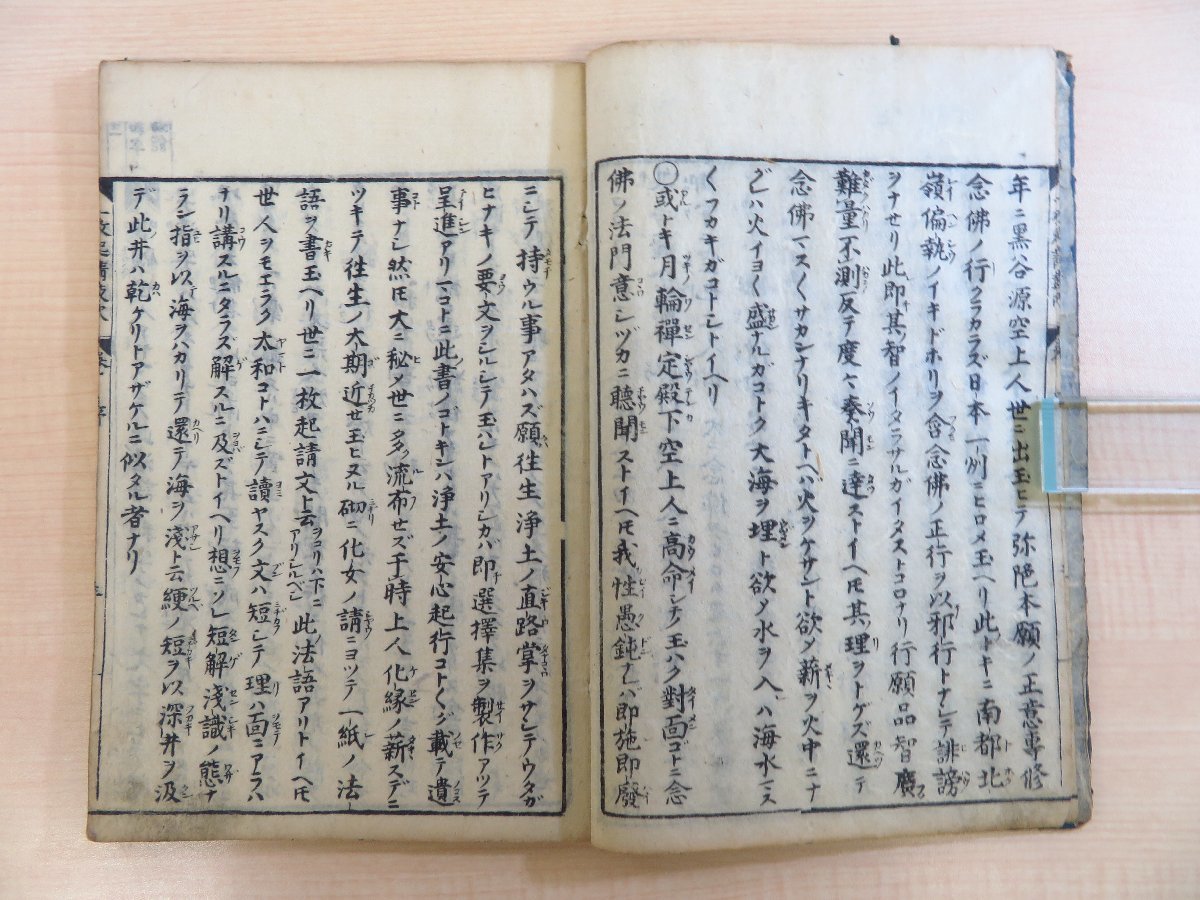 年ニ黒谷源空上人世ニ出玉ヒテ弥陀本願ノ正意専修
念佛ノ行クラカラズ日本一州ニヒロメ玉ヘリ此トキニ南都北
嶺偏執ノイキドホリヲ含念佛ノ正行ヲ以邪行トナシテ誹謗
ヲナセリ此即其智ノイタラサルガイタストコロナリ行願品智廣
難量不測反テ度々奏聞ニ達ストイヘ𪜈其理ヲトゲズ還テ
念佛マスくサカンナリキタトヘバ火ヲケサント欲メ薪ヲ火中ニナ
グハ火イヨく盛ナルガコトク大海ヲ埋ト欲メ水ヲ入ハ海水マス
くフカキガコトシトイヘリ
○或トキ月輪禪定殿下空上人ニ高命シテノ玉ハク對面ゴトニ念
佛ノ法門意シヅカニ聽聞ストイヘ𪜈我性愚鈍ナレバ即施即廢
ニシテ持ウル事アタハズ願往生浄土ノ直路掌ヲサシテウタガ
ヒナキノ要文ヲシルシテ玉ハレトアリシカバ即選擇集ヲ製作アツテ
呈進アリマコトニ此書ノゴトキンハ浄土ノ安心起行コトくグ載テ遺
事ナシ然𪜈大ニ秘メ世ニ多流布せズ于時上人化縁ノ薪スデニ
ツキテ往生ノ大期近せ玉ヒヌル砌ニ化女ノ請ニヨツテ一紙ノ法
語ヲ書玉ヘリ世ニ一枚起請文ト云ヲコリハ下ニアリシルベシ此法語アリトイヘ𪜈
世人ヲモエラク太和コトハニシテ讀ヤスク文ハ短シテ理ハ面ニアラハ
テリ講スルニタラズ解スルニ及ズトイヘリ想ニソレ短解淺識ノ態ナ
ラン指ヲ以海ヲハカリテ還テ海ヲ淺ト云綆ノ短ヲ以深井ヲ汲
デ此井ハ乾ケリトアザケルニ似タル者ナリ